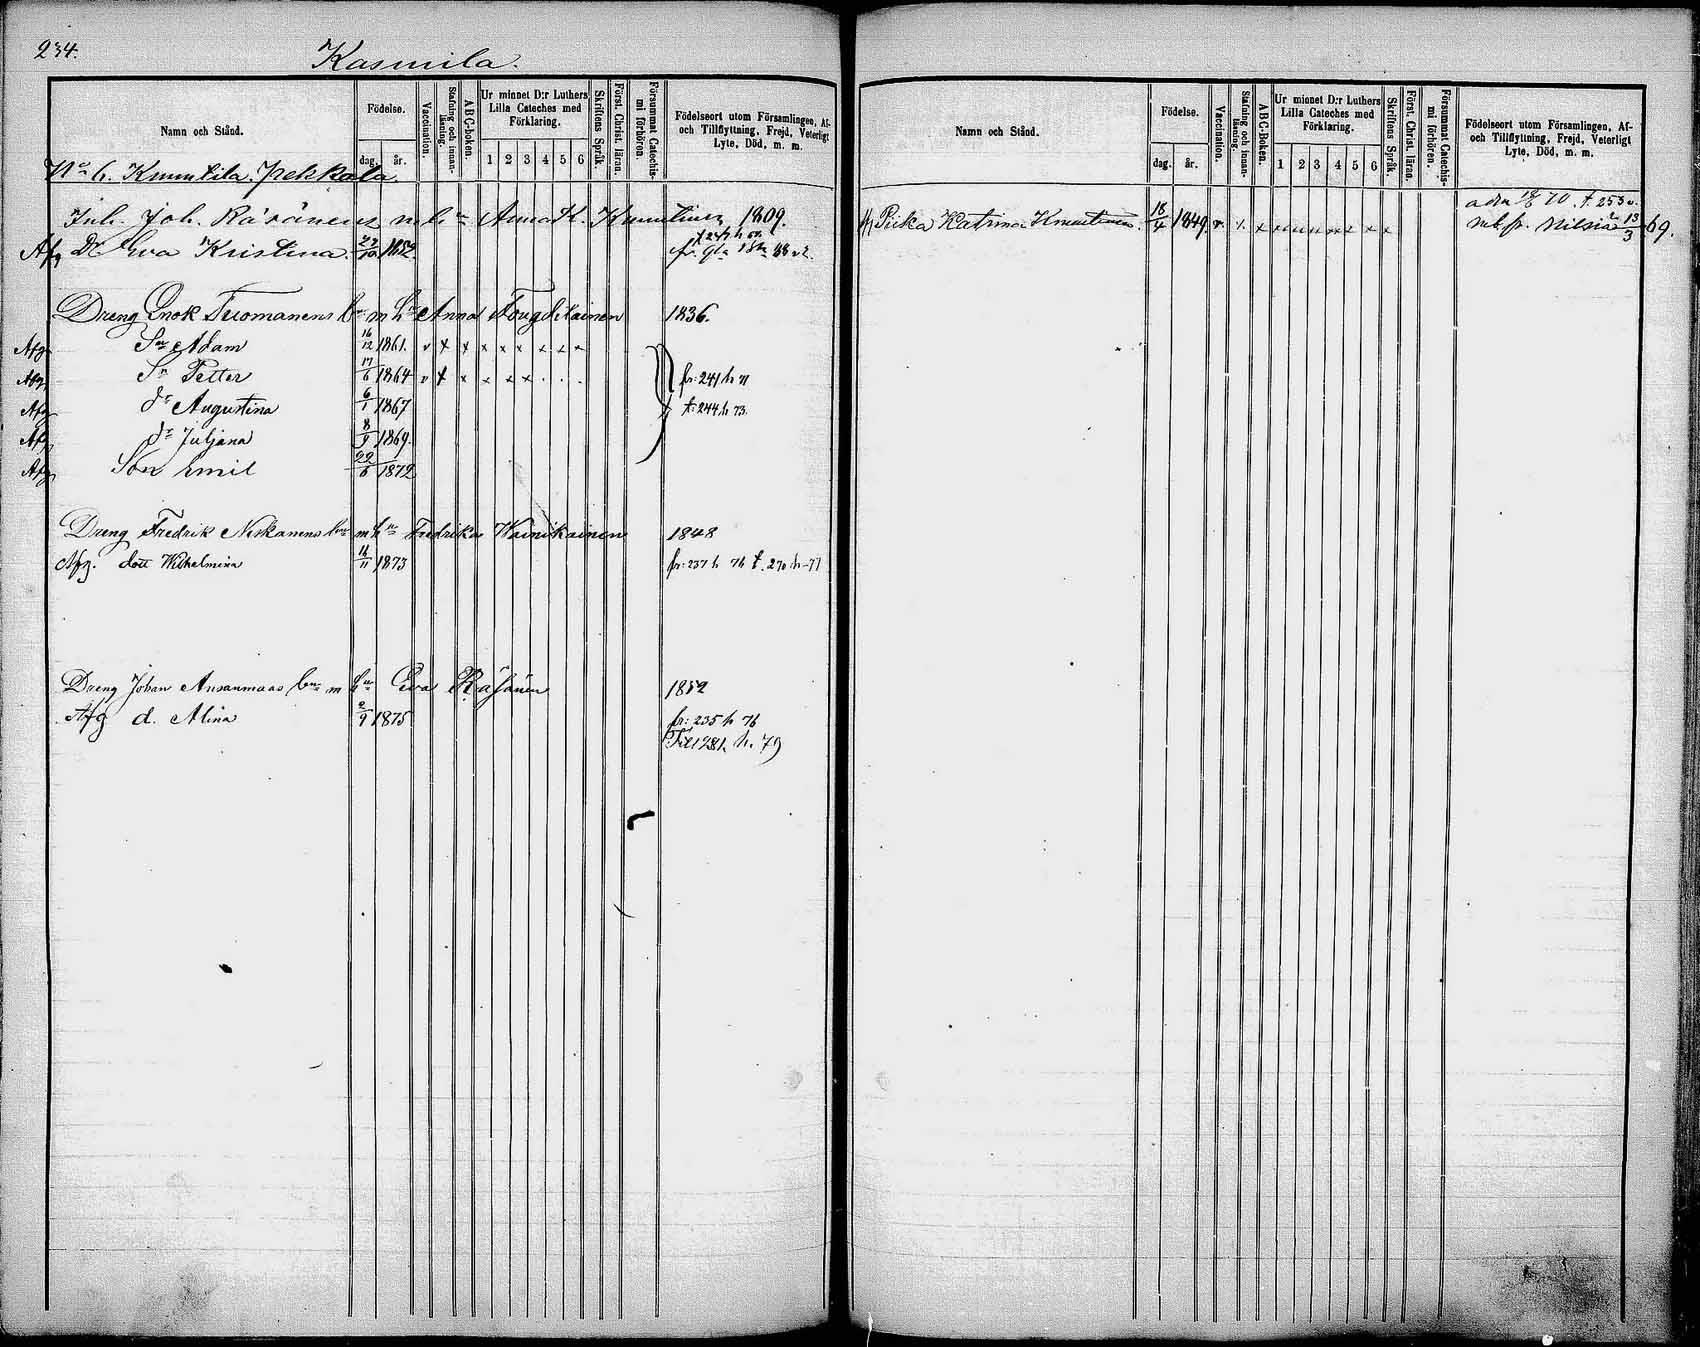 234.
Kasmila.
Namn och Stånd.
Födelse.
dag.
år.
Vaccination.
Stafning och innan-läsning.
ABC-boken.
Ur minnet D:r Luthers
Lilla Cateches med
Förklaring.
1 2 3 4 5 6
Skriftens Språk.
Först. Christ. läran.
Försummat Catechis-mi förhören.
Födelseort utom Församlingen, Af-
och Tillflyttning, Frejd, Veterligt
Lyte, Död, m. m.
No 6. Knuutila Pekkala.
Inh. Joh. Räsänens m h. Anna K. Knuutinen 1809.
Afg Dr Eva Kristina. 1852.
Dreng Enok Tuomanens bn m hu Anna 1836.
Afg Sn Adam 16/12 1861. v x x x x x x x x
Afg Sn Petter 17/6 1864 v x x x x x . . . fr: 241 h 71
Afg dr Augustina 6/1 1867 t: 244 h 73.
Afg dr Juljana 8/9 1869.
Afg Son Emil 22/6 1872
Dreng Fredrik Niskanens bn m hu Fredrika Wainikainen 1848
Afg. dott Wilhelmina 16/11 1873 fr: 237 h 76 t. 270 h-77
Dreng Johan Ansanmaas bn m hu Eva Räsänen 1852
Afg d. Alina 2/9 1875 fr: 235 h 76
Till 1281, h. 79
Namn och Stånd.
Födelse.
dag.
år.
Vaccination.
Stafning och innan-läsning.
ABC-boken.
Ur minnet D:r Luthers
Lilla Cateches med
Förklaring.
1 2 3 4 5 6
Skriftens Språk.
Först. Christ. läran.
Försummat Catechis-mi förhören.
Födelseort utom Församlingen, Af-
och Tillflyttning, Frejd, Veterligt
Lyte, Död, m. m.
70. t 253
Piika Katrina Knuutinen. 18/4 1849. v. x x x x x x x x x mb fr. Nilsiä 13/3 69.